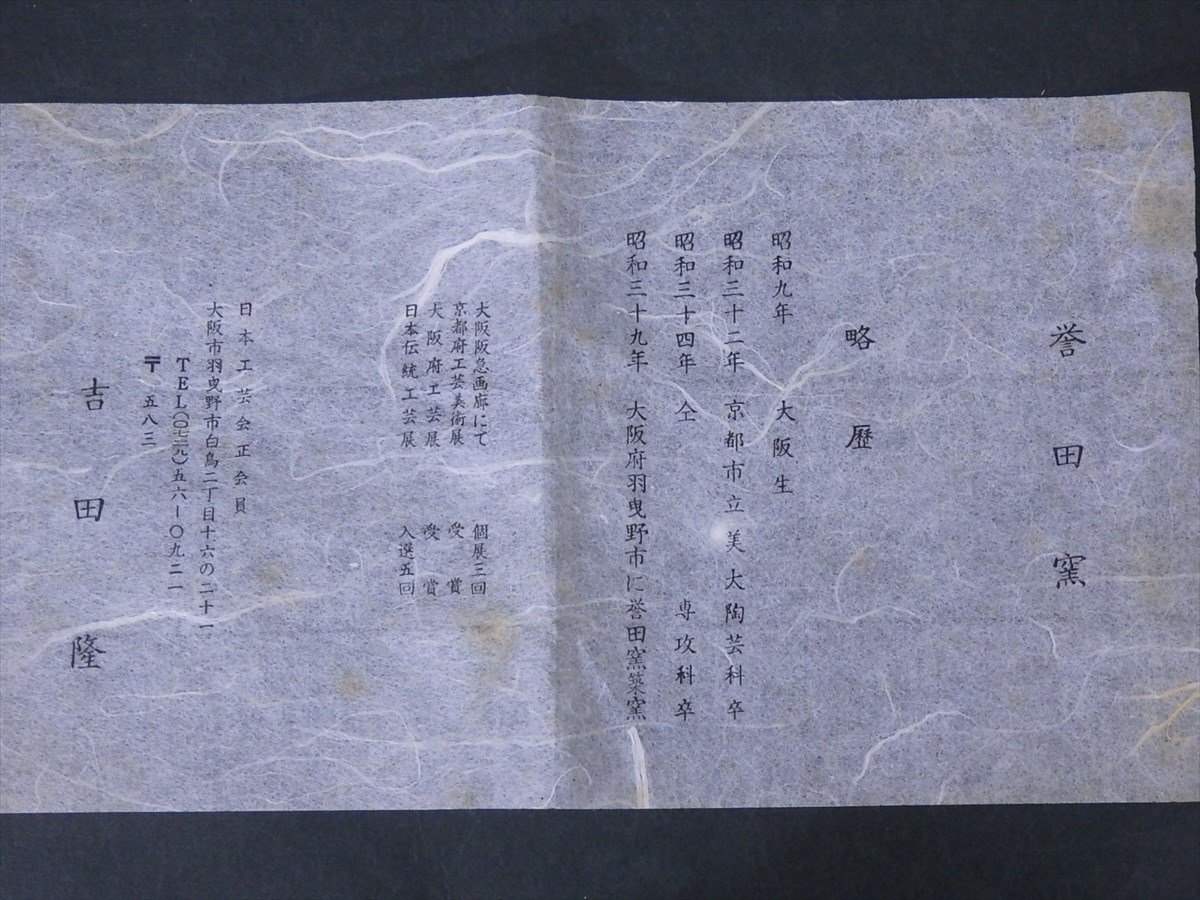 誉田窯
略歴
昭和九年 大阪生
昭和三十二年 京都市立美大陶芸科卒
昭和三十四年 仝 専攻科卒
昭和三十九年 大阪府羽曳野市に誉田窯築窯
大阪阪急画廊にて 個展三回
京都府工芸美術展 受賞
大阪府工芸展 受賞
日本伝統工芸展 入選五回
日本工芸会正会員
大阪市羽曳野市白鳥二丁目十六の二十一
TEL(〇七二九)五六ー〇九二一
〒五八三
吉田隆